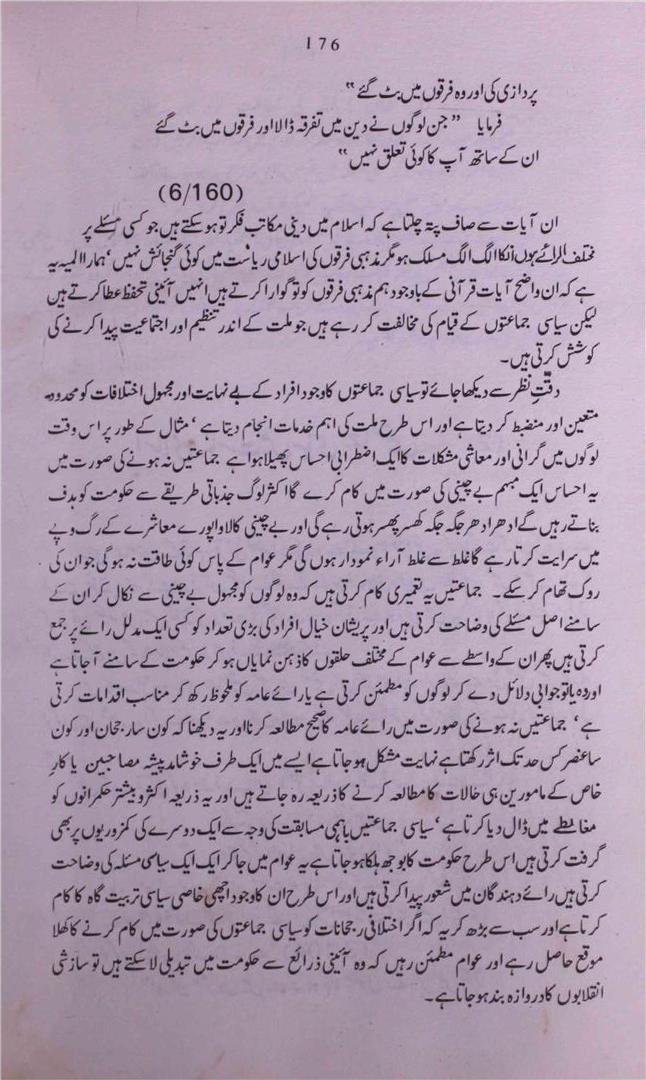 176
پردازی کی اور وہ فرقوں میں بٹ گئے “
فرمایا ” جن لوگوں نے دین میں تفرقہ ڈالا اور فرقوں میں بٹ گئے
ان کے ساتھ آپ کا کوئی تعلق نہیں “
(6/160)
ان آیات سے صاف پتہ چلتا ہے کہ اسلام میں دینی مکاتب فکر تو ہو سکتے ہیں جو کسی مسئلے پر
مختلف الرائے ہوں انکا الگ الگ مسلک ہو مگر مذہبی فرقوں کی اسلامی ریاست میں کوئی گنجائش نہیں ‘ ہمارا المیہ یہ
ہے کہ ان واضح آیات قرآنی کے باوجود ہم مذہبی فرقوں کو تو گوارا کرتے ہیں انہیں آئینی تحفظ عطا کرتے ہیں
لیکن سیاسی جماعتوں کے قیام کی مخالفت کر رہے ہیں جو ملت کے اندر تنظیم اور اجتماعیت پیدا کرنے کی
کوشش کرتی ہیں۔
دقتِ نظر سے دیکھا جائے تو سیاسی جماعتوں کا وجود افراد کے بے نہایت اور مجہول اختلافات کو محدود
متعین اور منضبط کر دیتا ہے اور اس طرح ملت کی اہم خدمات انجام دیتا ہے ‘ مثال کے طور پر اس وقت
لوگوں میں گرانی اور معاشی مشکلات کا ایک اضطرابی احساس پھیلا ہوا ہے جماعتیں نہ ہونے کی صورت میں
یہ احساس ایک مبہم بے چینی کی صورت میں کام کرے گا اکثر لوگ جذباتی طریقے سے حکومت کو ہدف
بناتے رہیں گے ادھر ادھر جگہ جگہ کھسر پھسر ہوتی رہے گی اور بے چینی کا لاوا پورے معاشرے کے رگ و پے
میں سرایت کرتا رہے گا غلط سے غلط آراء نمودار ہوں گی مگر عوام کے پاس کوئی طاقت نہ ہوگی جو ان کی
روک تھام کر سکے۔ جماعتیں یہ تعمیری کام کرتی ہیں کہ وہ لوگوں کو مجہول بے چینی سے نکال کر ان کے
سامنے اصل مسئلے کی وضاحت کرتی ہیں اور پریشان خیال افراد کی بڑی تعداد کو کسی ایک مدلل رائے پر جمع
کرتی ہیں پھر ان کے واسطے سے عوام کے مختلف حلقوں کا ذہن نمایاں ہو کر حکومت کے سامنے آ جاتا ہے
اور وہ یا تو جوابی دلائل دے کر لوگوں کو مطمئن کرتی ہے یا رائے عامہ کو ملحوظ رکھ کر مناسب اقدامات کرتی
ہے ‘ جماعتیں نہ ہونے کی صورت میں رائے عامہ کا صحیح مطالعہ کرنا اور یہ دیکھنا کہ کون سا رجحان اور کون
سا عنصر کس حد تک اثر رکھتا ہے نہایت مشکل ہو جاتا ہے ایسے میں ایک طرف خوشامد پیشہ مصاحبین یا کار
خاص کے مامورین ہی حالات کا مطالعہ کرنے کا ذریعہ رہ جاتے ہیں اور یہ ذریعہ اکثر و بیشتر حکمرانوں کو
مغالطے میں ڈال دیا کرتا ہے ‘ سیاسی جماعتیں باہمی مسابقت کی وجہ سے ایک دوسرے کی کمزوریوں پر بھی
گرفت کرتی ہیں اس طرح حکومت کا بوجھ ہلکا ہو جاتا ہے یہ عوام میں جا کر ایک ایک سیاسی مسئلہ کی وضاحت
کرتی ہیں رائے دہندگان میں شعور پیدا کرتی ہیں اور اس طرح ان کا وجود اچھی خاصی سیاسی تربیت گاہ کا کام
کرتا ہے اور سب سے بڑھ کر یہ کہ اگر اختلافی رجحانات کو سیاسی جماعتوں کی صورت میں کام کرنے کا کھلا
موقع حاصل رہے اور عوام مطمئن رہیں کہ وہ آئینی ذرائع سے حکومت میں تبدیلی لا سکتے ہیں تو سازشی
انقلابوں کا دروازہ بند ہو جاتا ہے۔